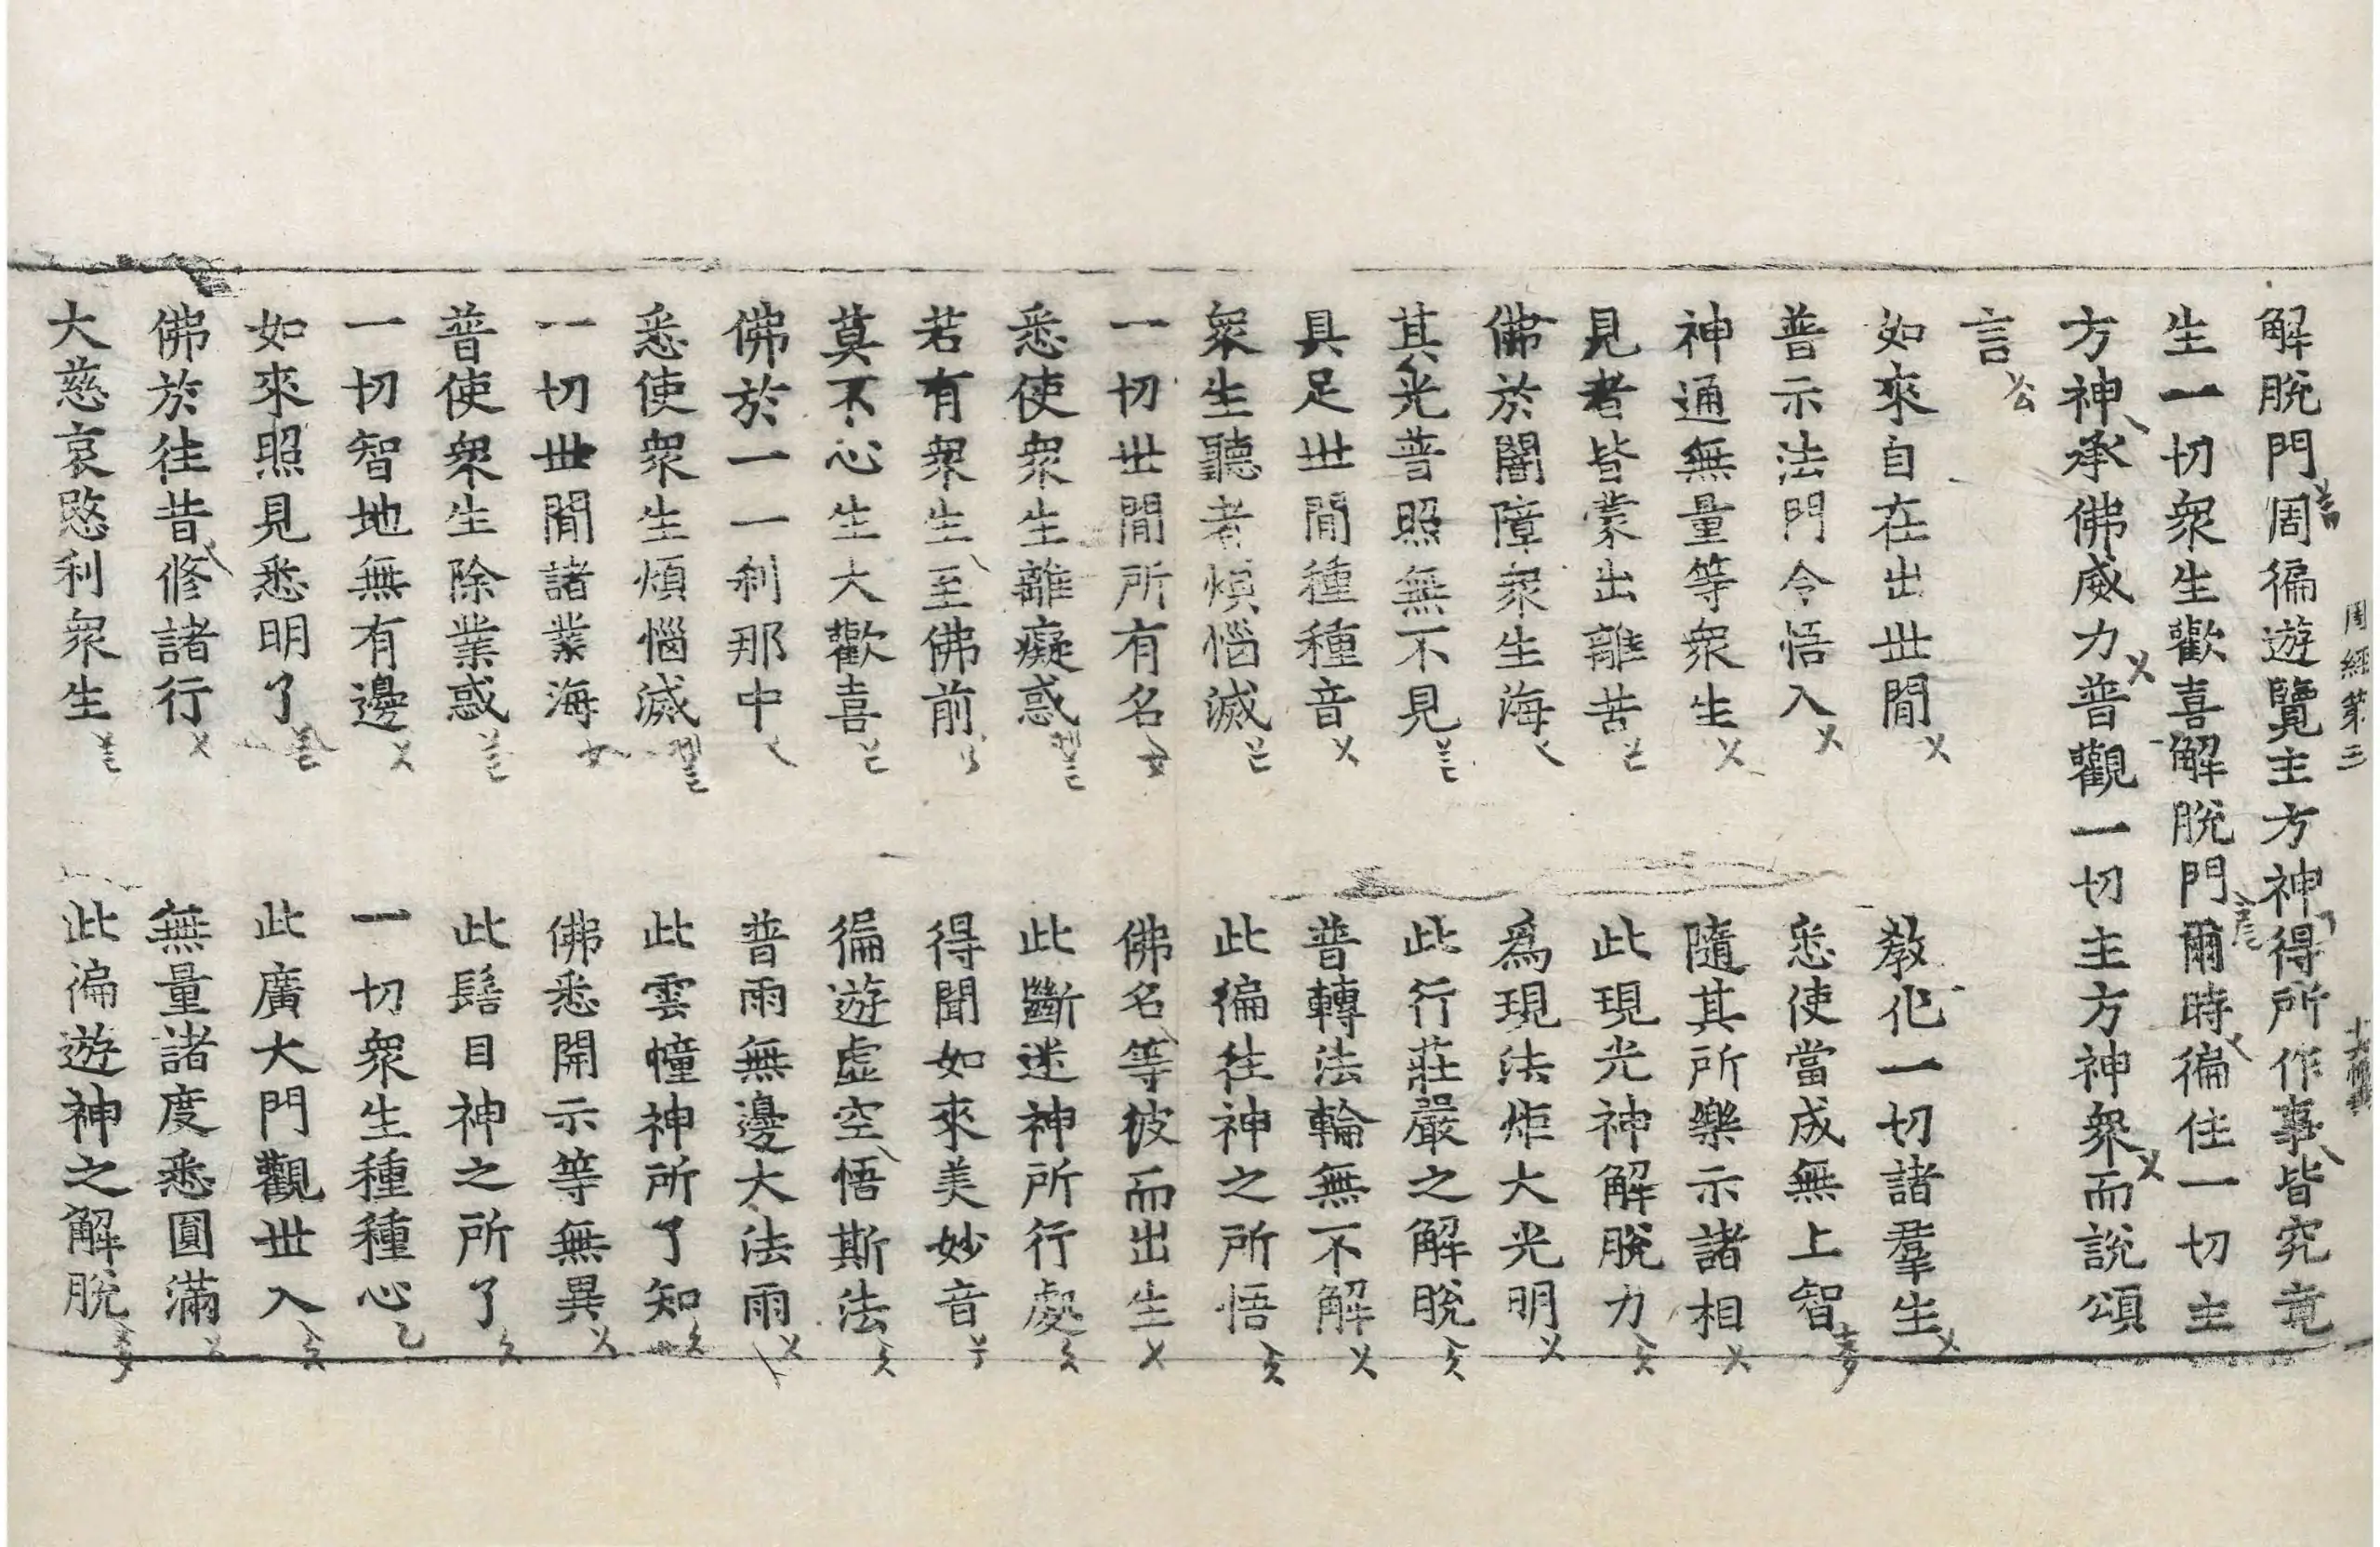 周經第三
解脫門周徧遊覽主方神得所作事皆究竟
生一切衆生歡喜解脫門爾時徧住一切主
方神承佛威力普觀一切主方神衆而說頌
言
如來自在出世閒 教化一切諸羣生
普示法門令悟入 悉使當成無上智
神通無量等衆生 隨其所樂示諸相
見者皆蒙出離苦 此現光神解脫力
佛於闇障衆生海 爲現法炬大光明
其光普照無不見 此行莊嚴之解脫
具足世閒種種音 普轉法輪無不解
衆生聽者煩惱滅 此徧往神之所悟
一切世閒所有名 佛名等彼而出生
悉使衆生離癡惑 此斷迷神所行處
若有衆生至佛前 得聞如來美妙音
莫不心生大歡喜 徧遊虛空悟斯法
佛於一一剎那中 普雨無邊大法雨
悉使衆生煩惱滅 此雲幢神所了知
一切世閒諸業海 佛悉開示等無異
普使衆生除業惑 此髻目神之所了
一切智地無有邊 一切衆生種種心
如來照見悉明了 此廣大門觀世入
佛於往昔修諸行 無量諸度悉圓滿
大慈哀愍利衆生 此徧遊神之解脫